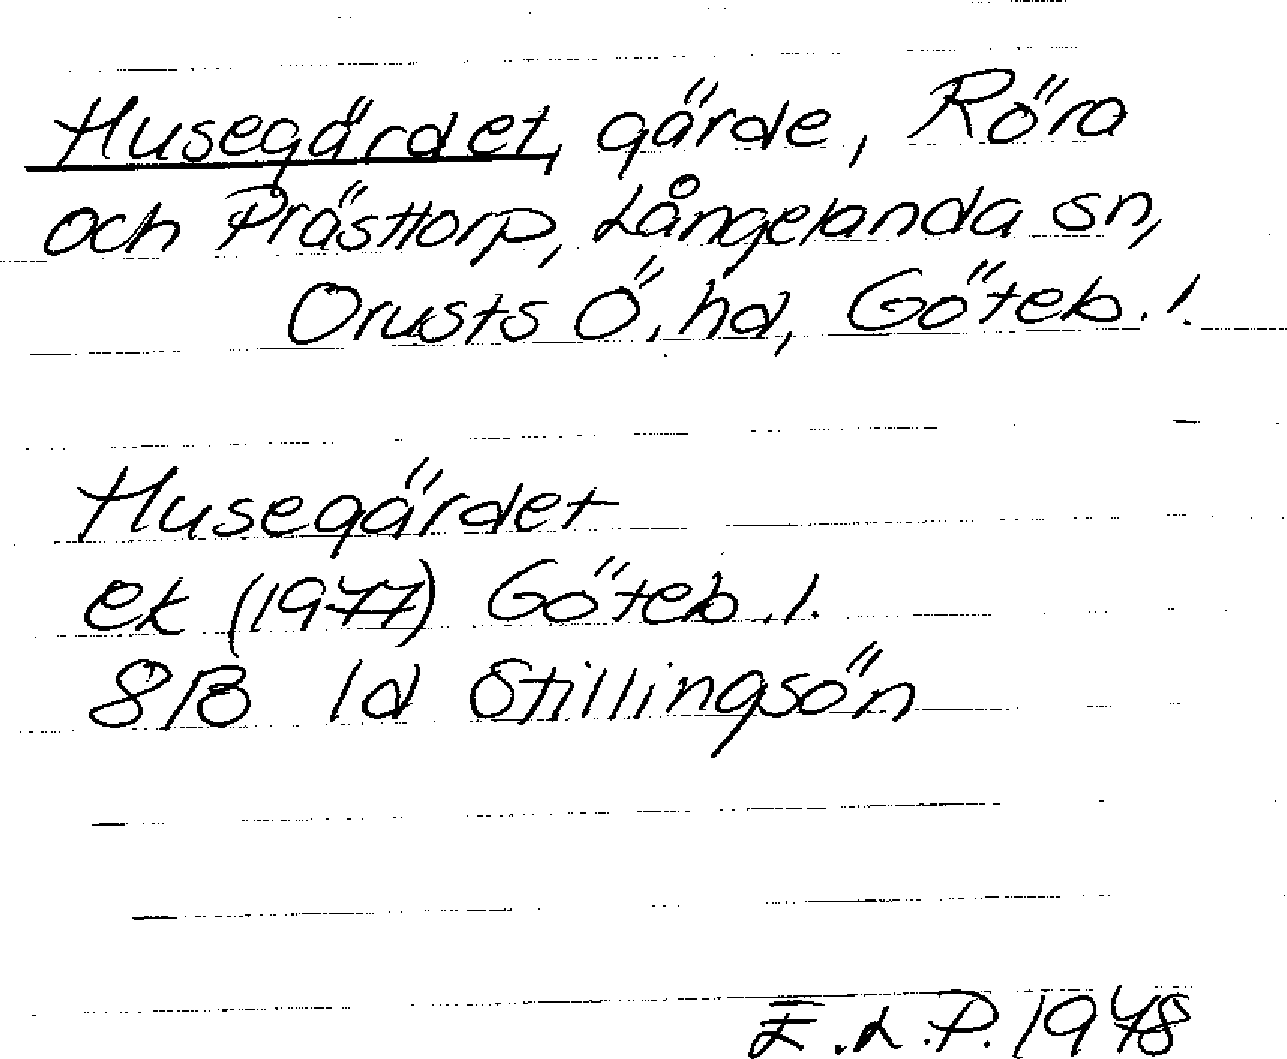 Husegärdet, gärde, Röra
och Prästtorp, Långelanda sn,
Orusts Ö. hd, Göteb. l.
Husegärdet
ek (1977) Göteb. l.
8B 1d Stillingsön
E.L.P. 1948